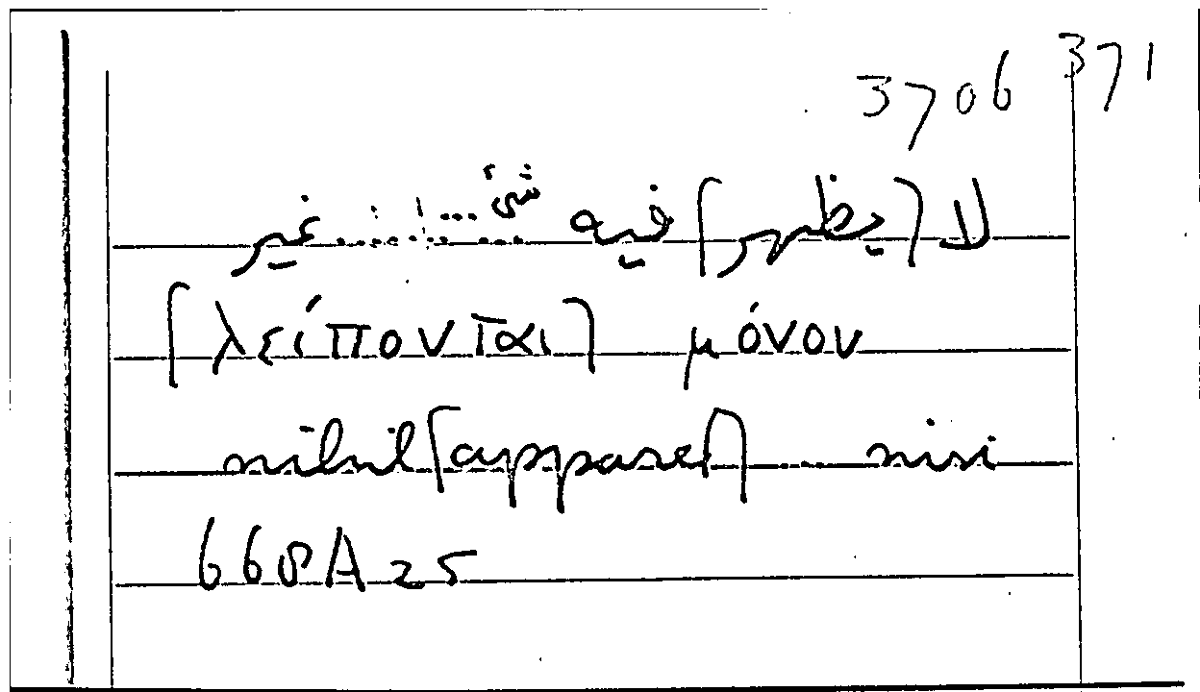 3706 371
لا [يظهر] فيه شئ ... غير
[λείπονται] μόνον
nihil [apparet] nisi
668A25